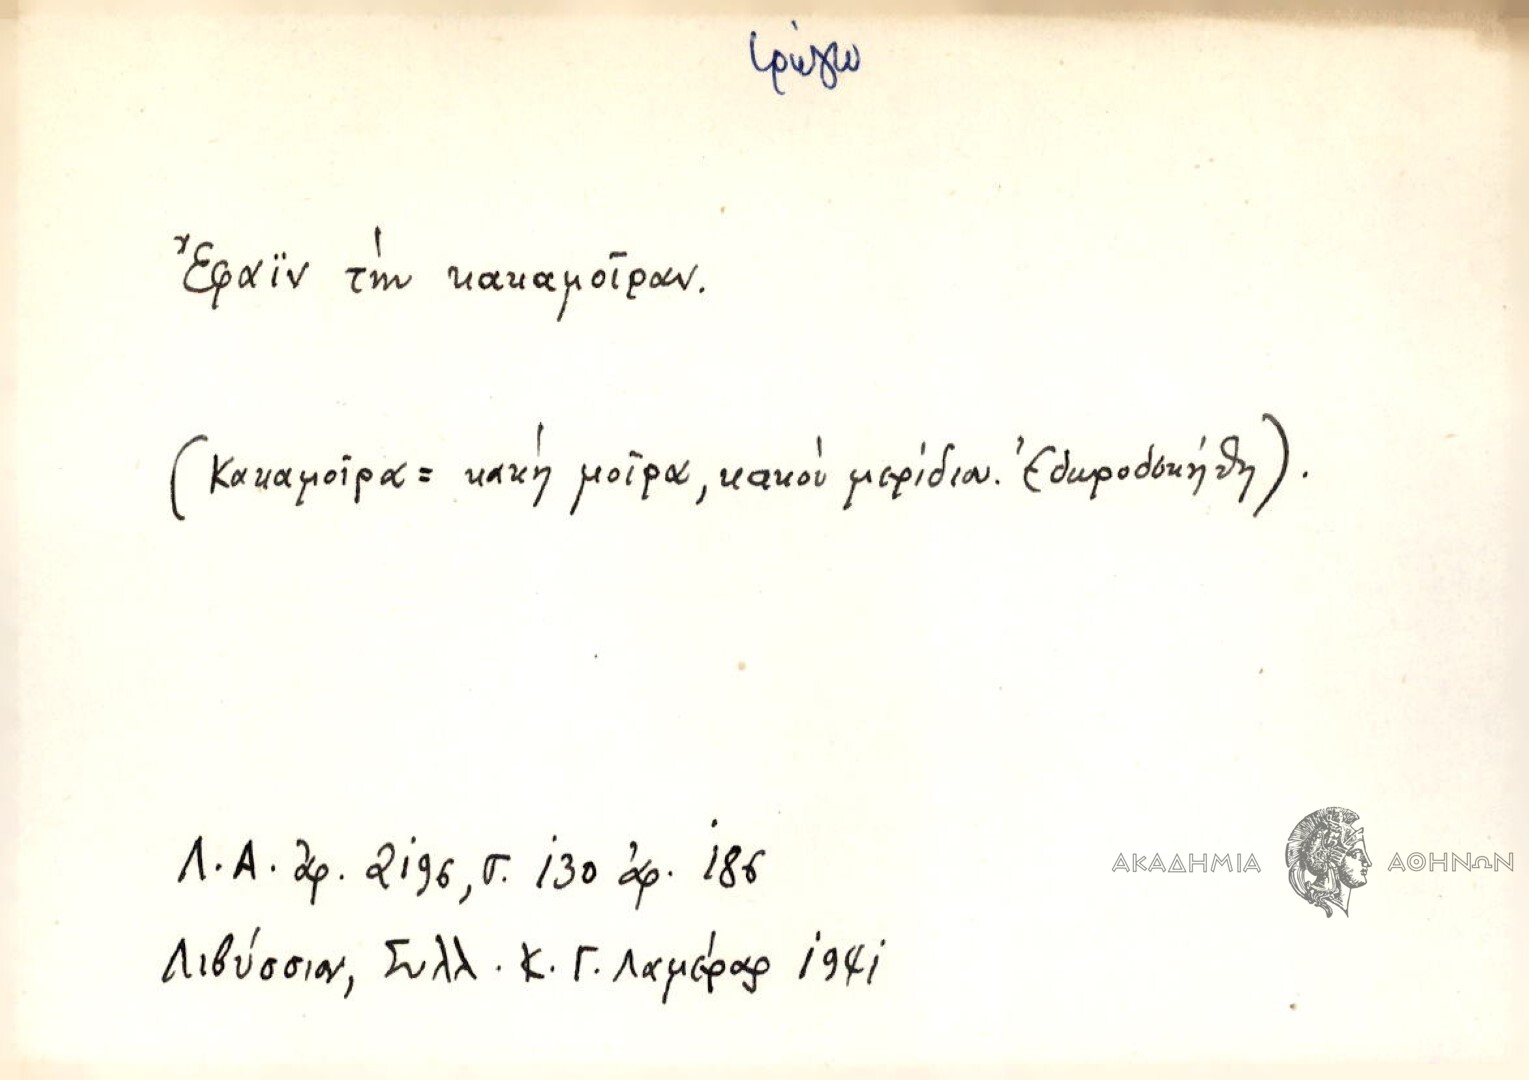 τρώγω
Ἔφαϊν τὴν κακαμοῖραν.
(Κακαμοῖρα = κακὴ μοῖρα, κακὸν μερίδιον. Ἐδωροδοκήθη).
Λ.Α. ἀρ. 2196, σ. 130 ἀρ. 186
Λιβύσσιον, Συλλ. Κ. Γ. Λαμέρας 1941
ΑΚΑΔΗΜΙΑ ΑΘΗΝΩΝ